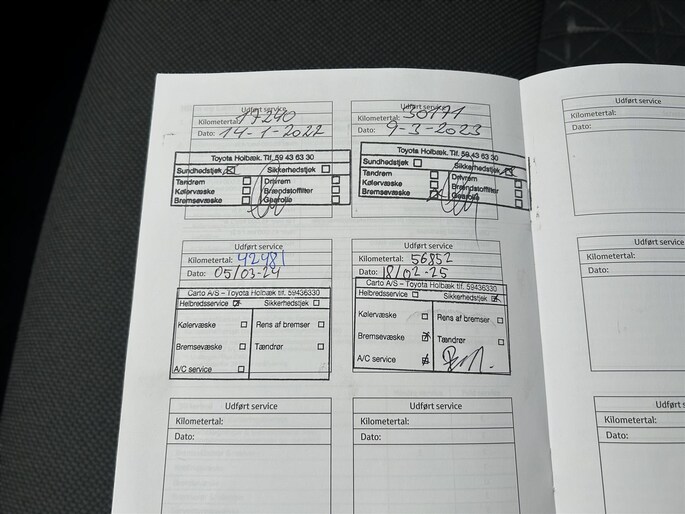 Udført service
Kilometertal: 17240
Dato: 14-1-2022
Toyota Holbæk. Tlf. 59 43 63 30
Sundhedstjek Sikkerhedstjek
Tandrem Drivrem
Kølervæske Brændstoffilter
Bremsevæske Gearolie
Udført service
Kilometertal: 30171
Dato: 9-3-2023
Toyota Holbæk. Tlf. 59 43 63 30
Sundhedstjek Sikkerhedstjek
Tandrem Drivrem
Kølervæske Brændstoffilter
Bremsevæske Gearolie
Udført service
Kilometertal:
Dato:
Udført service
Kilometertal: 42481
Dato: 05/03-24
Carto A/S – Toyota Holbæk tlf. 59436330
Helbredsservice Sikkerhedstjek
Kølervæske Rens af bremser
Bremsevæske Tændrør
A/C service
Udført service
Kilometertal: 56852
Dato: 18/02-25
Carto A/S – Toyota Holbæk tlf. 59436330
Helbredsservice Sikkerhedstjek
Kølervæske Rens af bremser
Bremsevæske Tændrør
A/C service
Udført se
Kilometertal:
Dato:
Udført service
Kilometertal:
Dato:
Udført service
Kilometertal:
Dato:
Udført
Kilometertal:
Dato: